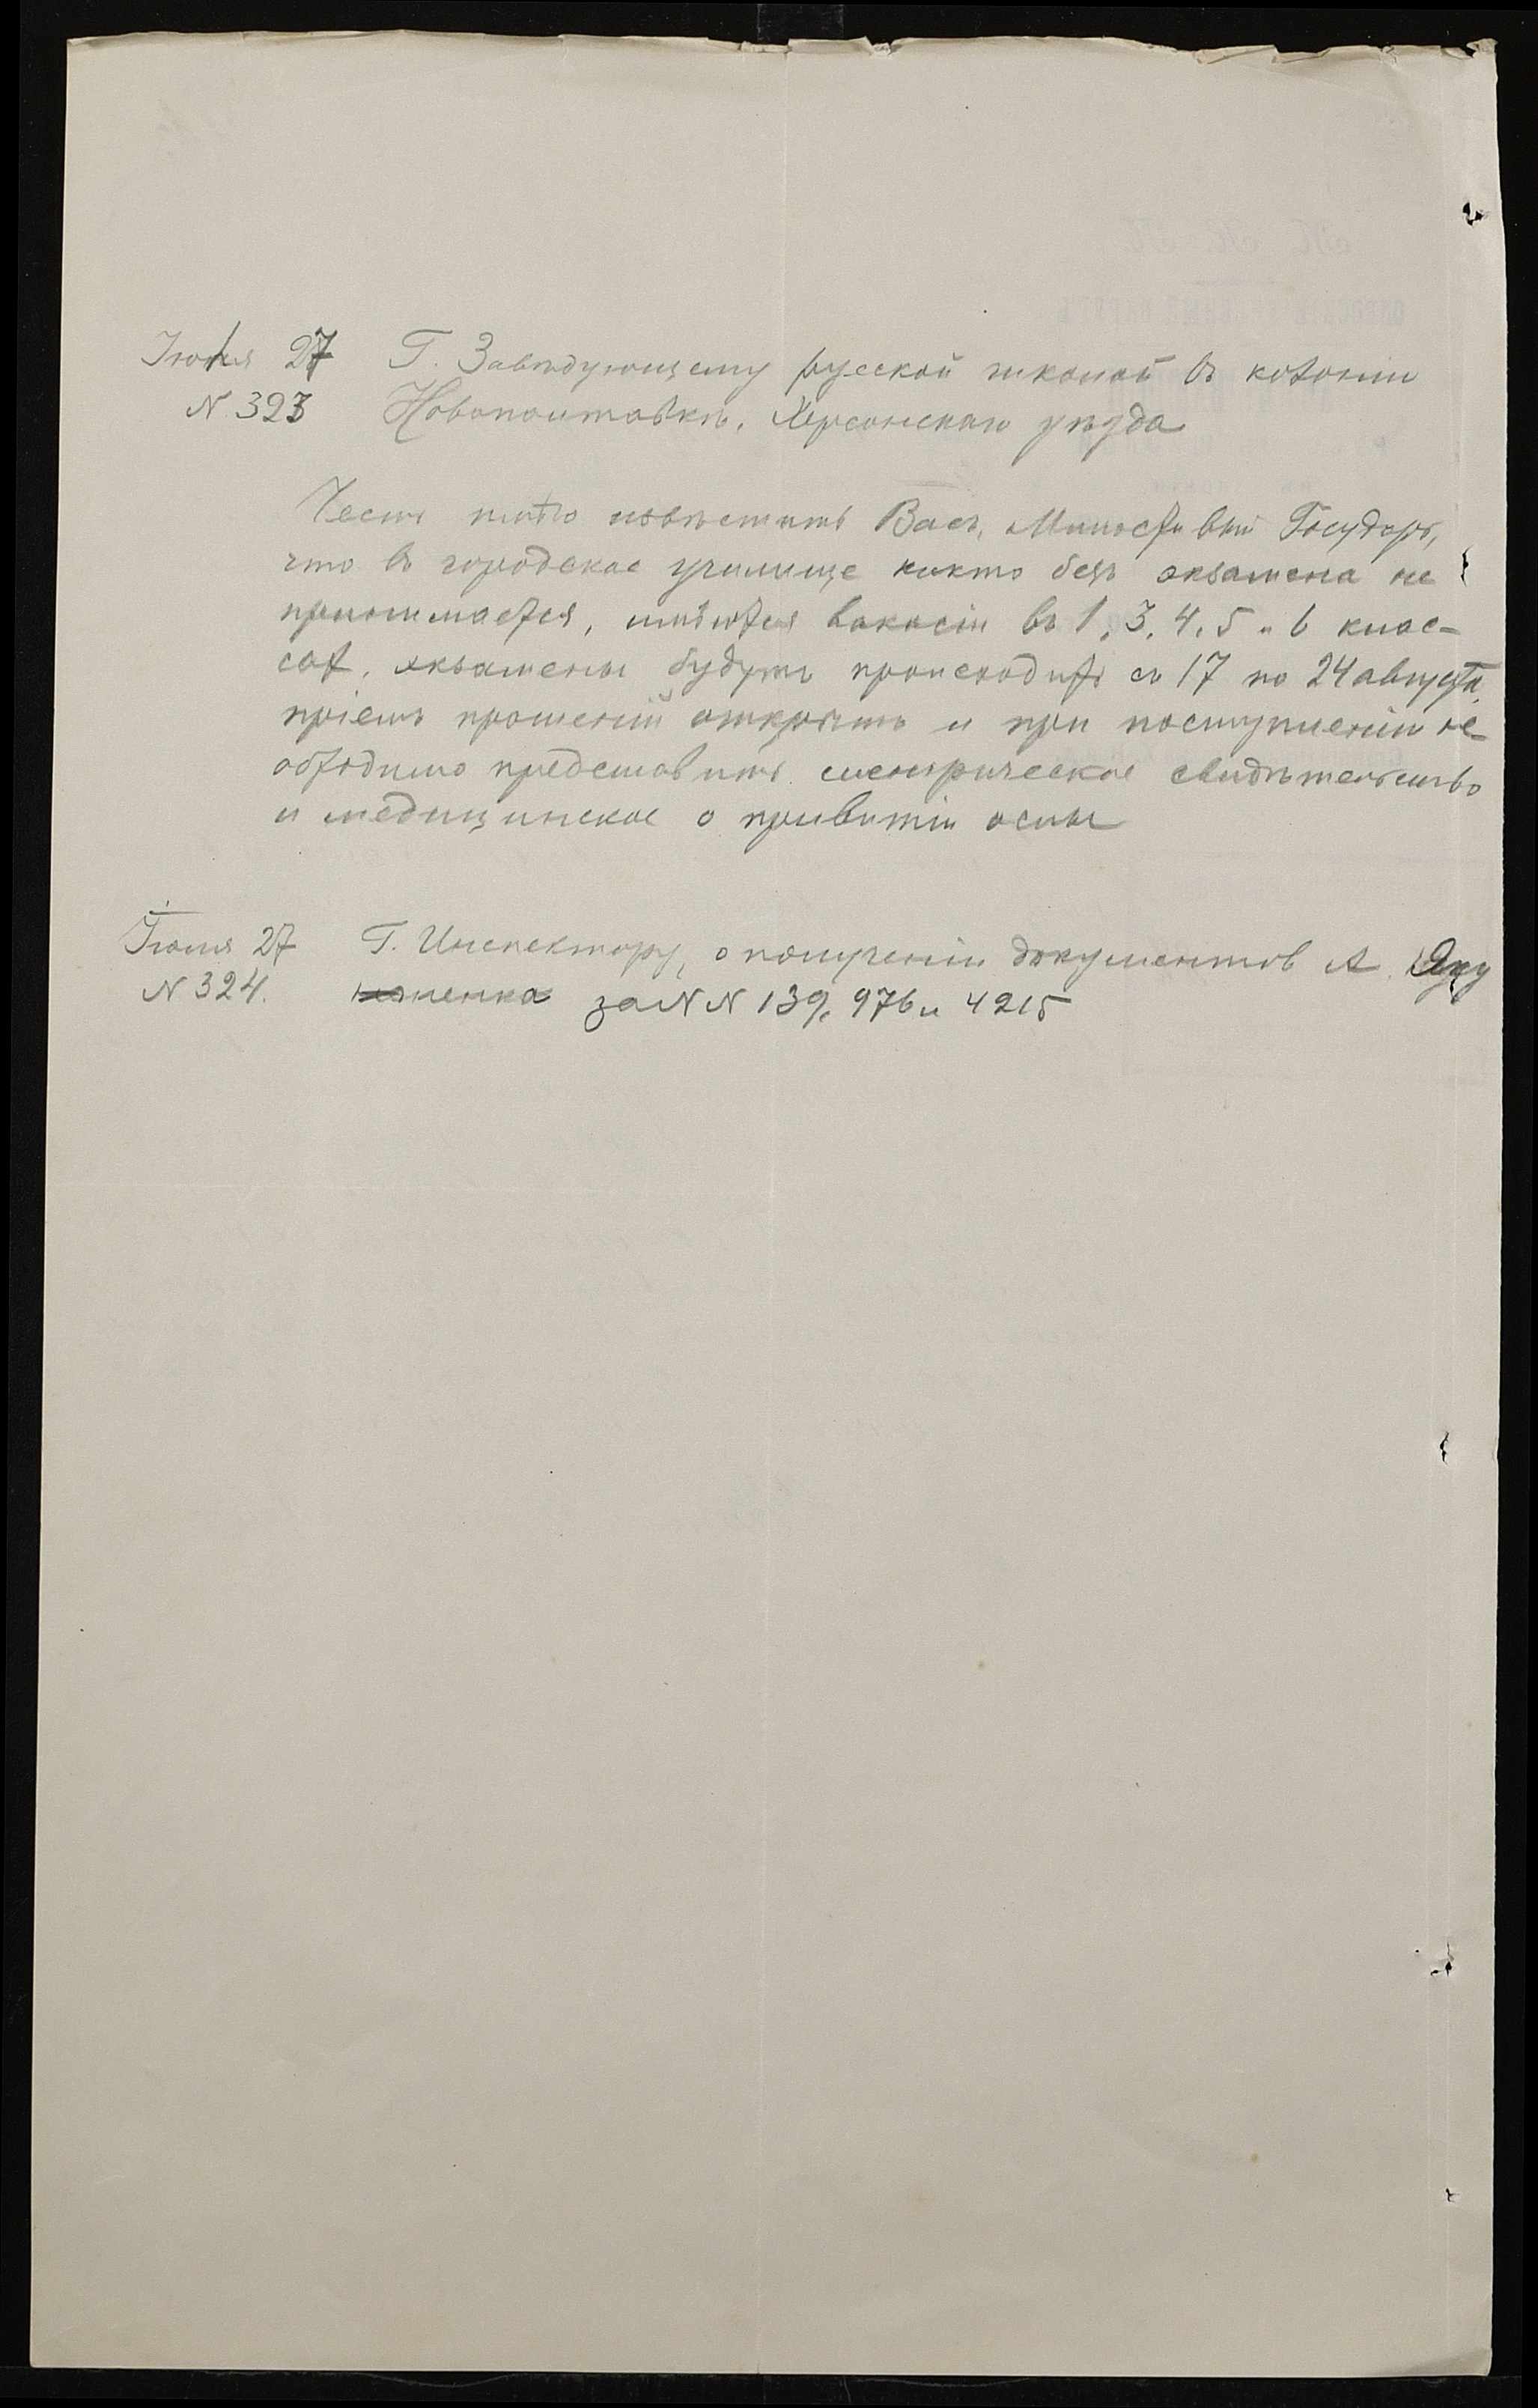 Іюля 27 Г. Завѣдующему русской школой въ колоніи
N. 323 Новополтавкѣ, Херсонскаго уѣзда
Честь имѣю извѣстить Васъ, Милостивый Государь,
что въ городское училище никто безъ экзамена не
принимается, имѣются вакасіи въ 1, 3, 4, 5 и 6 клас-
сах, экзамены будутъ происходить съ 17 по 24 августа,
пріемъ прошеній открытъ и при поступленіи не-
обходимо представить метрическое свидѣтельство
и медицинское о привитіи оспы
Іюля 27 Г. Инспектору, о полученіи документов А. Яку
N 324. менка за N N 139, 976 и 4215